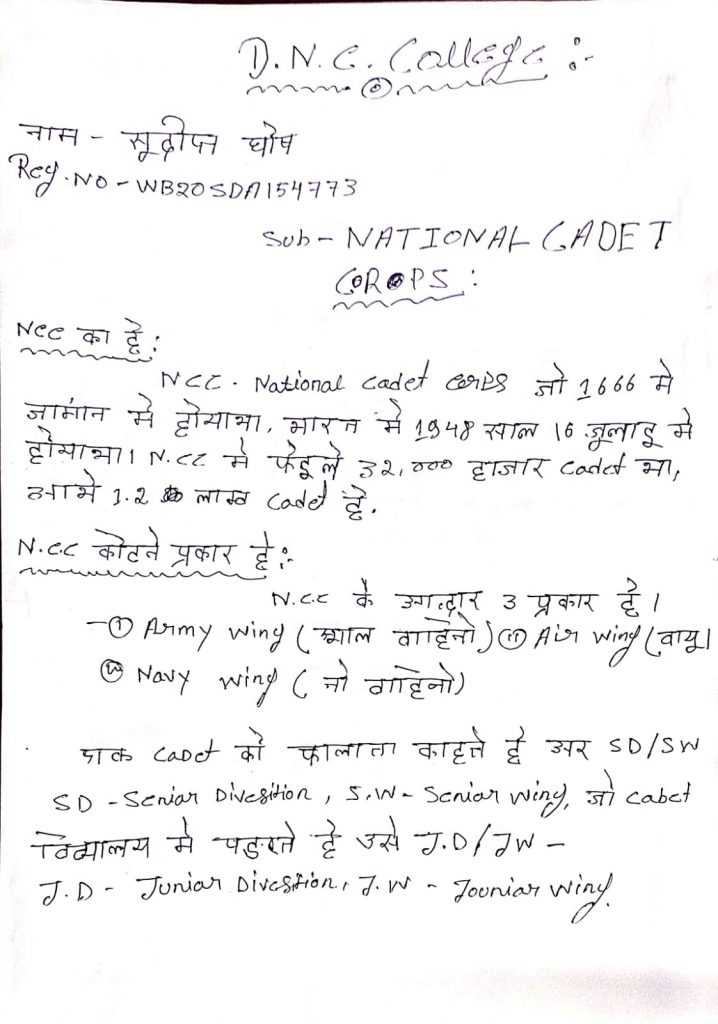 D.N.C. College :-
नाम - सूदीप्त घोष
Reg.NO - WB20SDA154773
Sub - NATIONAL CADET
COROPS :
NCC का है :
NCC - National Cadet Corps जो 1666 मे
जार्मान मे होयाथा, भारत मे 1948 साल 16 जूलाइ मे
होयाथा। N.CC मे 32,000 हाजार Cadet था,
1.2 लाख Cadet है.
N.CC कोटने प्रकार है :-
N.C.C के 3 प्रकार है।
① Army wing ( वाहिनो ) ② Air wing (वायू।
③ Navy wing ( नो वाहिनो)
एक Cadet को काहते है अर SD/SW
SD - Seniar Divesition, S.W - Seniar wing, जो cabet
विद्यालय मे पड़रते है उसे J.D/JW -
J.D - Juniar Divestion, J.W - Jouniar wing.